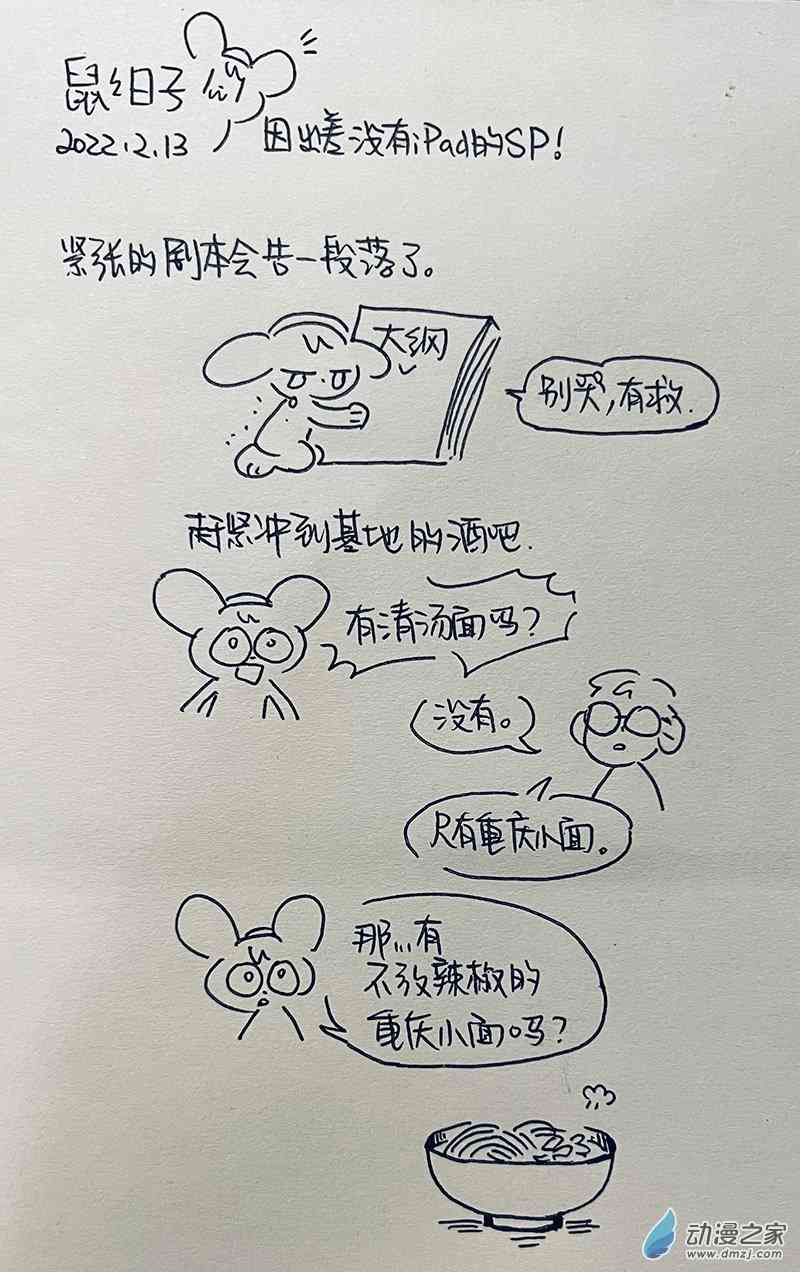 鼠绘日子
2022.2.13 因出差没有iPad的SP!
紧张的剧本会告一段落了。
大纲
别哭,有救.
赶紧冲到基地的酒吧.
有清汤面吗?
没有。
只有重庆小面。
那...有
不放辣椒的
重庆小面吗?
动漫之家
www.dmzj.com